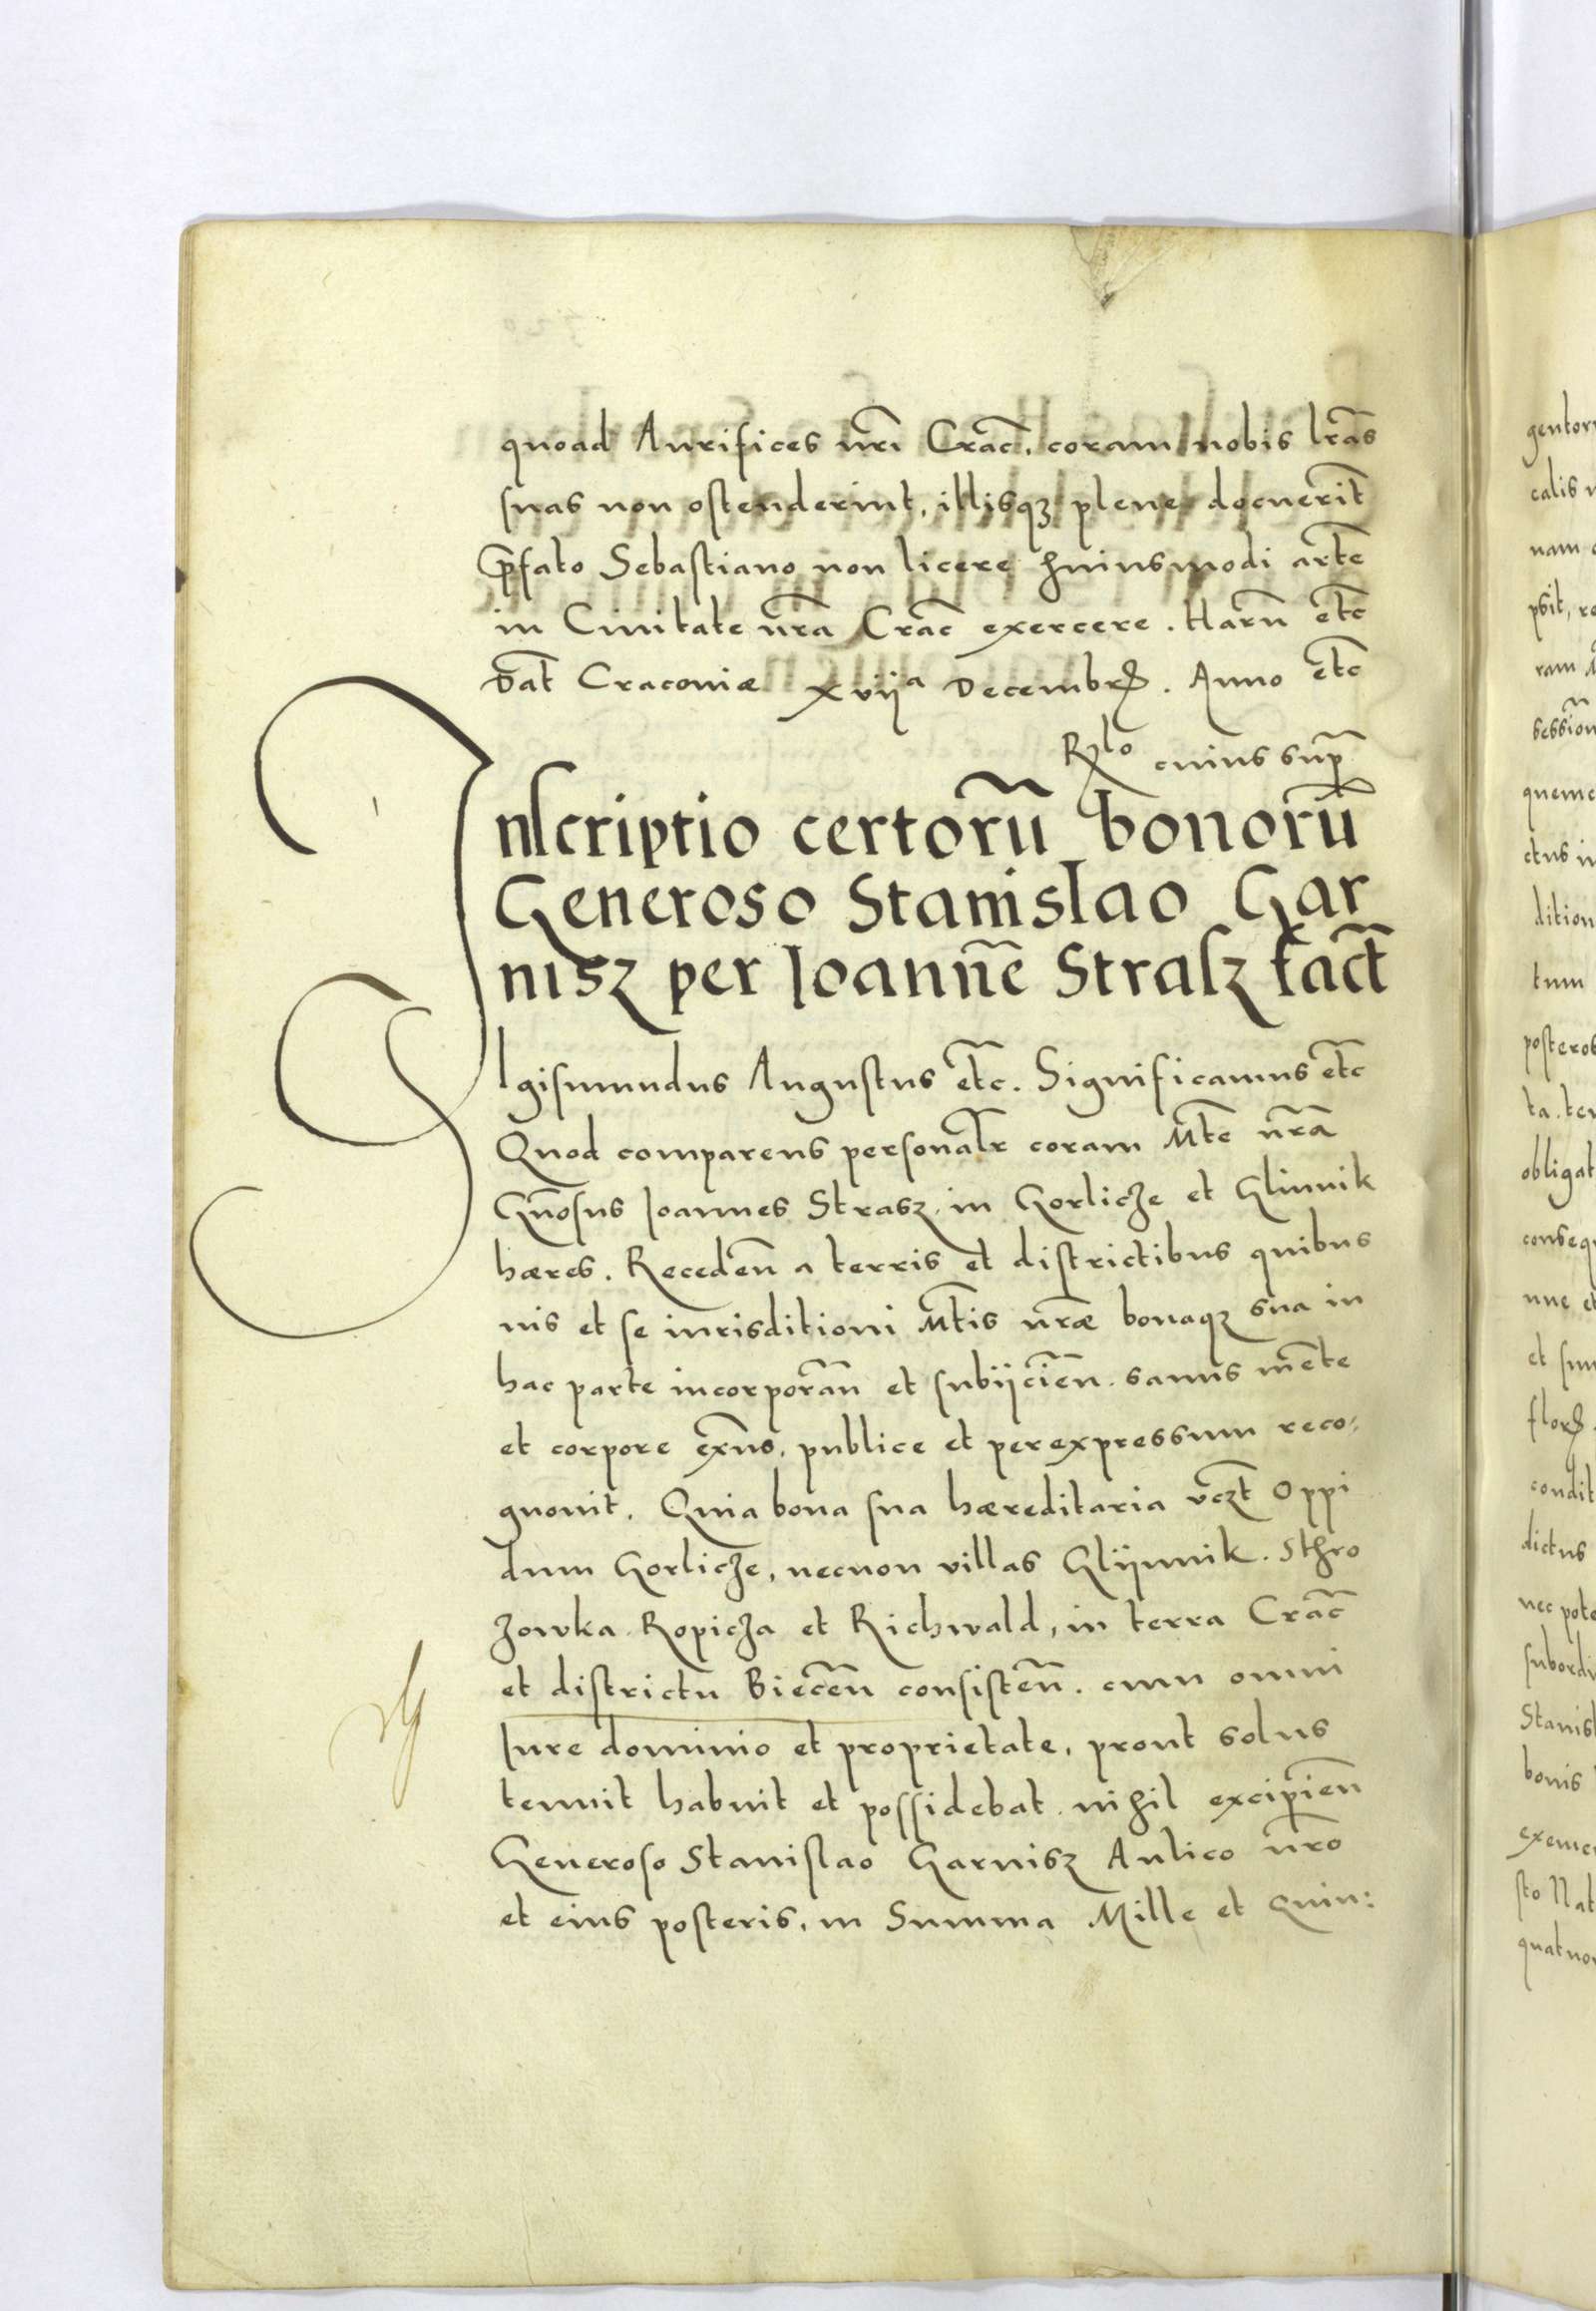 quoad Aurifices nr̃i Crac̃. coram nobis lr̃as
suas non ostenderint, illisqꝫ plene docuerĩt
p̃fato Sebastiano non licere huiusmodi artẽ
in Ciuitate nr̃a Crac̃ exercere. Harũ etc̃
Dat̃ Cracouiæ xvijᵃ Decembrꝭ. Anno etc̃
Rͦlo cuius sup̃
Inscriptio certorũ bonorũ
Generoso Stanislao Gar
nisz per Joannẽ Strasz fact̃
Sigismundus Augustus etc̃. Significamus etc̃
Quod comparens personalr̃ coram Mt̃e nr̃a
Gñosus Joannes Strasz in Gorlicze et Glinnik
hæres. Recedeñ a terris et districtibus quibus
uis et se iurisditioni Mt̃is nr̃æ bonaqꝫ sua in
hac parte incorporañ et subijcieñ. sanus mẽte
et corpore exñs. publice et per expressum reco:
gnouit. Quia bona sua hæreditaria vcꝫt̃ Oppi
dum Gorlicze, necnon villas Glijnnik. Sthro
zowka Ropicza et Richwald, in terra Crac̃
et districtu Bieceñ consisteñ. cum omni
Jure dominio et proprietate, prout solus
tenuit habuit et possidebat. nihil excipieñ
Generoso Stanislao Garnisz Aulico nr̃o
et eius posteris, in Summa Mille et Quin:
gentor
calis
nam
ram
quemc
ctus in
dition
tum
posteros
ta. ter
obligat
conseq
nne et
condit
dictus
nec pote
subordi
Stanisl
bonis
exemc
sto Nat
quatuor